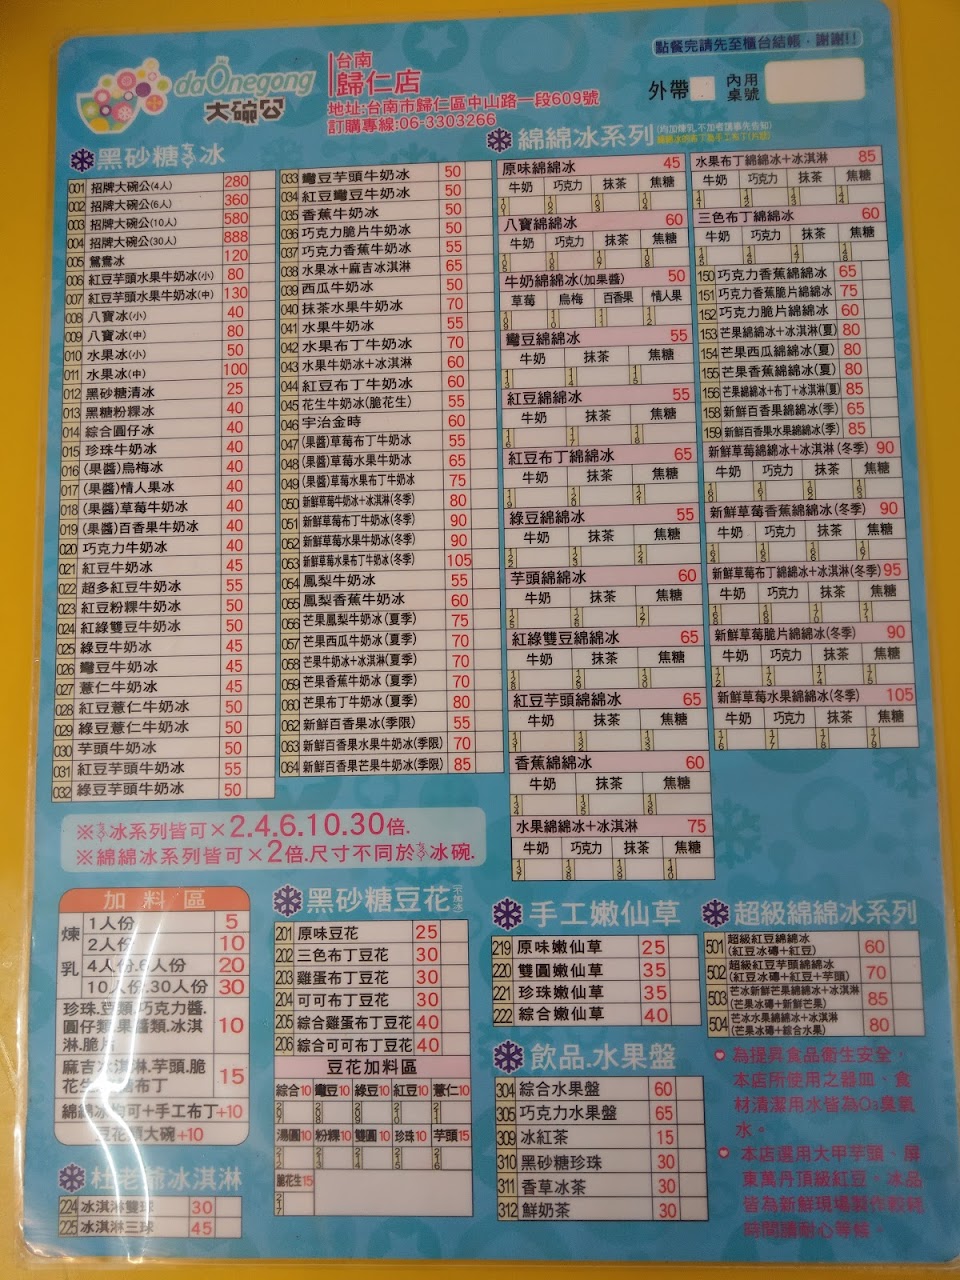 點餐完請先至櫃台結帳，謝謝!!
daOnegong
大碗公
台南
歸仁店
地址:台南市歸仁區中山路一段609號
訂購專線:06-3303266
外帶
內用
桌號
黑砂糖ㄘㄨㄚˋ冰
001 招牌大碗公(4人) 280
002 招牌大碗公(6人) 360
003 招牌大碗公(10人) 580
004 招牌大碗公(30人) 888
005 鴛鴦冰 120
006 紅豆芋頭水果牛奶冰(小) 80
007 紅豆芋頭水果牛奶冰(中) 130
008 八寶冰(小) 40
009 八寶冰(中) 80
010 水果冰(小) 50
011 水果冰(中) 100
012 黑砂糖清冰 25
013 黑糖粉粿冰 40
014 綜合圓仔冰 40
015 珍珠牛奶冰 40
016 (果醬)烏梅冰 40
017 (果醬)情人果冰 40
018 (果醬)草莓牛奶冰 40
019 (果醬)百香果牛奶冰 40
020 巧克力牛奶冰 40
021 紅豆牛奶冰 45
022 超多紅豆牛奶冰 55
023 紅豆粉粿牛奶冰 50
024 紅綠雙豆牛奶冰 50
025 綠豆牛奶冰 45
026 彎豆牛奶冰 45
027 薏仁牛奶冰 45
028 紅豆薏仁牛奶冰 50
029 綠豆薏仁牛奶冰 50
030 芋頭牛奶冰 50
031 紅豆芋頭牛奶冰 55
032 綠豆芋頭牛奶冰 50
033 彎豆芋頭牛奶冰 50
034 紅豆彎豆牛奶冰 50
035 香蕉牛奶冰 50
036 巧克力脆片牛奶冰 50
037 巧克力香蕉牛奶冰 55
038 水果冰+麻吉冰淇淋 65
039 西瓜牛奶冰 50
040 抹茶水果牛奶冰 70
041 水果牛奶冰 55
042 水果布丁牛奶冰 70
043 水果牛奶冰+冰淇淋 60
044 紅豆布丁牛奶冰 60
045 花生牛奶冰(脆花生) 55
046 宇治金時 60
047 (果醬)草莓布丁牛奶冰 55
048 (果醬)草莓水果牛奶冰 65
049 (果醬)草莓水果布丁牛奶冰 75
050 新鮮草莓牛奶冰+冰淇淋(冬季) 80
051 新鮮草莓布丁牛奶冰(冬季) 90
052 新鮮草莓水果牛奶冰(冬季) 90
053 新鮮草莓水果布丁牛奶冰(冬季) 105
054 鳳梨牛奶冰 55
055 鳳梨香蕉牛奶冰 60
056 芒果鳳梨牛奶冰(夏季) 75
057 芒果西瓜牛奶冰(夏季) 70
058 芒果牛奶冰+冰淇淋(夏季) 70
059 芒果香蕉牛奶冰(夏季) 70
060 芒果布丁牛奶冰(夏季) 80
062 新鮮百香果冰(季限) 55
063 新鮮百香果水果牛奶冰(季限) 70
064 新鮮百香果芒果牛奶冰(季限) 85
綿綿冰系列
(均加煉乳,不加者請事先告知)
原味綿綿冰 45
牛奶 巧克力 抹茶 焦糖
101 102 103 104
八寶綿綿冰 60
牛奶 巧克力 抹茶 焦糖
105 106 107 108
牛奶綿綿冰(加果醬) 50
草莓 烏梅 百香果 情人果
109 110 111 112
彎豆綿綿冰 55
牛奶 抹茶 焦糖
113 114 115
紅豆綿綿冰 55
牛奶 抹茶 焦糖
116 117 118
紅豆布丁綿綿冰 65
牛奶 抹茶 焦糖
119 120 121
綠豆綿綿冰 55
牛奶 抹茶 焦糖
122 123 124
芋頭綿綿冰 60
牛奶 抹茶 焦糖
125 126 127
紅綠雙豆綿綿冰 65
牛奶 抹茶 焦糖
128 129 130
紅豆芋頭綿綿冰 65
牛奶 抹茶 焦糖
131 132 133
香蕉綿綿冰 60
牛奶 抹茶 焦糖
134 135 136
水果綿綿冰+冰淇淋 75
牛奶 巧克力 抹茶 焦糖
137 138 139 140
水果布丁綿綿冰+冰淇淋 85
牛奶 巧克力 抹茶 焦糖
141 142 143 144
三色布丁綿綿冰 60
牛奶 巧克力 抹茶 焦糖
145 146 147 148
150 巧克力香蕉綿綿冰 65
151 巧克力香蕉脆片綿綿冰 75
152 巧克力脆片綿綿冰 60
153 芒果綿綿冰+冰淇淋(夏) 80
154 芒果西瓜綿綿冰(夏) 80
155 芒果香蕉綿綿冰(夏) 80
156 芒果綿綿冰+布丁+冰淇淋(夏) 85
158 新鮮百香果綿綿冰(季) 65
159 新鮮百香果水果綿綿冰(季) 85
新鮮草莓綿綿冰+冰淇淋(冬季) 90
牛奶 巧克力 抹茶 焦糖
160 161 162 163
新鮮草莓香蕉綿綿冰(冬季) 90
牛奶 巧克力 抹茶 焦糖
164 165 166 167
新鮮草莓布丁綿綿冰+冰淇淋(冬季) 95
牛奶 巧克力 抹茶 焦糖
168 169 170 171
新鮮草莓脆片綿綿冰(冬季) 90
牛奶 巧克力 抹茶 焦糖
172 173 174 175
新鮮草莓水果綿綿冰(冬季) 105
牛奶 巧克力 抹茶 焦糖
176 177 178 179
※ㄘㄨㄚˋ冰系列皆可×2.4.6.10.30倍.
※綿綿冰系列皆可×2倍.尺寸不同於ㄘㄨㄚˋ冰碗.
加料區
煉乳
1人份 5
2人份 10
4人份.6人份 20
10人份.30人份 30
珍珠.豆類.巧克力醬.
圓仔類.果醬類.冰淇
淋.脆片 10
麻吉冰淇淋.芋頭.脆
花生 布丁 15
綿綿冰均可+手工布丁+10
豆花類大碗+10
杜老爺冰淇淋
224 冰淇淋雙球 30
225 冰淇淋三球 45
黑砂糖豆花
201 原味豆花 25
202 三色布丁豆花 30
203 雞蛋布丁豆花 30
204 可可布丁豆花 30
205 綜合雞蛋布丁豆花 40
206 綜合可可布丁豆花 40
豆花加料區
綜合10 彎豆10 綠豆10 紅豆10 薏仁10
207 208 209 210 211
湯圓10 粉粿10 雙圓10 珍珠10 芋頭15
212 213 214 215 216
脆花生15
217
手工嫩仙草
219 原味嫩仙草 25
220 雙圓嫩仙草 35
221 珍珠嫩仙草 35
222 綜合嫩仙草 40
飲品.水果盤
304 綜合水果盤 60
305 巧克力水果盤 65
309 冰紅茶 15
310 黑砂糖珍珠 30
311 香草冰茶 30
312 鮮奶茶 30
超級綿綿冰系列
501 超級紅豆綿綿冰
(紅豆冰磚+紅豆) 60
502 超級紅豆芋頭綿綿冰
(紅豆冰磚+紅豆+芋頭) 70
503 芒冰新鮮芒果綿綿冰+冰淇淋
(芒果冰磚+新鮮芒果) 85
504 芒冰水果綿綿冰+冰淇淋
(芒果冰磚+綜合水果) 80
為提昇食品衛生安全，
本店所使用之器皿、食
材清潔用水皆為O₃臭氧
水。
本店選用大甲芋頭、屏
東萬丹頂級紅豆。冰品
皆為新鮮現場製作較費
時間請耐心等候。